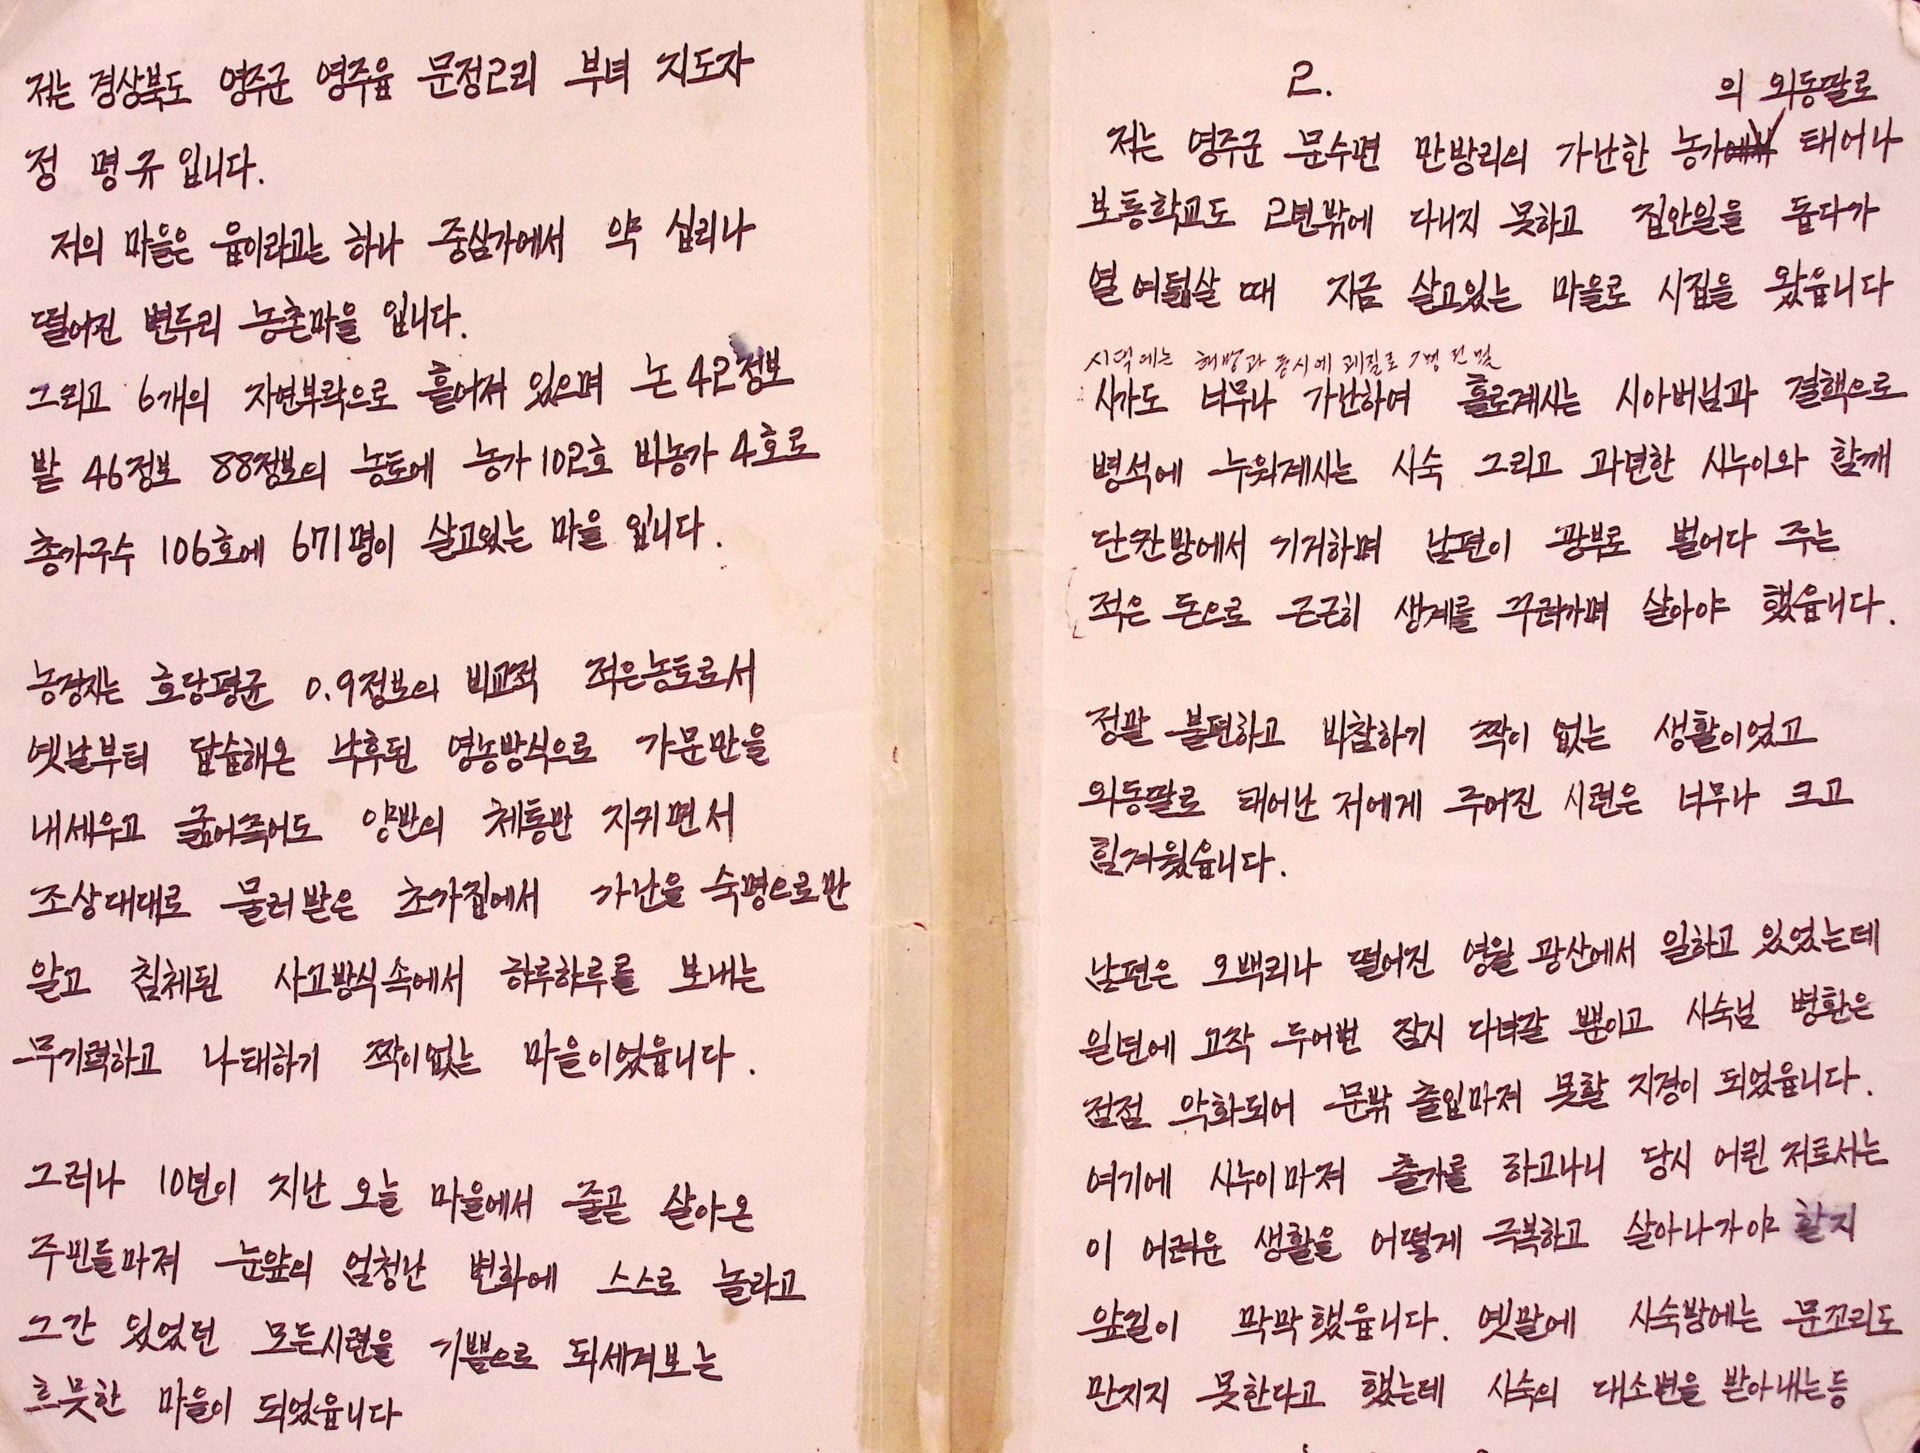 저는 경상북도 영주군 영주읍 문정2리 부녀 지도자
정 명규 입니다.
저의 마을은 읍이라고는 하나 중심가에서 약 십리나
떨어진 변두리 농촌마을 입니다.
그리고 6개의 자연부락으로 흩어져 있으며 논 42정보
밭 46정보 88정보의 농토에 농가 102호 비농가 4호로
총가구수 106호에 671명이 살고있는 마을 입니다.
농경지는 호당평균 0.9정보의 비교적 적은농토로서
옛날부터 답습해온 낙후된 영농방식으로 가문만을
내세우고 굶어죽어도 양반의 체통만 지키면서
조상대대로 물러받은 초가집에서 가난을 숙명으로만
알고 침체된 사고방식속에서 하루하루를 보내는
무기력하고 나태하기 짝이없는 마을이었읍니다.
그러나 10년이 지난 오늘 마을에서 줄곧 살아온
주민들마져 눈앞의 엄청난 변화에 스스로 놀라고
그간 있었던 모든시련을 기쁨으로 되세겨보는
흐뭇한 마을이 되었읍니다
2.
의 외동딸로
저는 영주군 문수면 만방리의 가난한 농가 태어나
보통학교도 2년밖에 다니지 못하고 집안일을 돕다가
열 여덟살 때 지금 살고있는 마을로 시집을 왔읍니다
시댁에는 해방과 동시에 괴질로 7명 전멸
시가도 너무나 가난하여 홀로계시는 시아버님과 결핵으로
병석에 누워계시는 시숙 그리고 과년한 시누이와 함께
단칸방에서 기거하며 남편이 광부로 벌어다 주는
적은 돈으로 근근히 생계를 꾸려가며 살아야 했읍니다.
정말 불편하고 비참하기 짝이 없는 생활이었고
외동딸로 태어난 저에게 주어진 시련은 너무나 크고
힘겨웠읍니다.
남편은 오백리나 떨어진 영월 광산에서 일하고 있었는데
일년에 고작 두어번 잠시 다녀갈 뿐이고 시숙님 병환은
점점 악화되어 문밖 출입마져 못할 지경이 되었읍니다.
여기에 시누이마져 출가를 하고나니 당시 어린 저로서는
이 어려운 생활을 어떻게 극복하고 살아나가야 할지
앞길이 막막했읍니다. 옛말에 시숙방에는 문꼬리도
만지지 못한다고 했는데 시숙의 대소변을 받아내는등